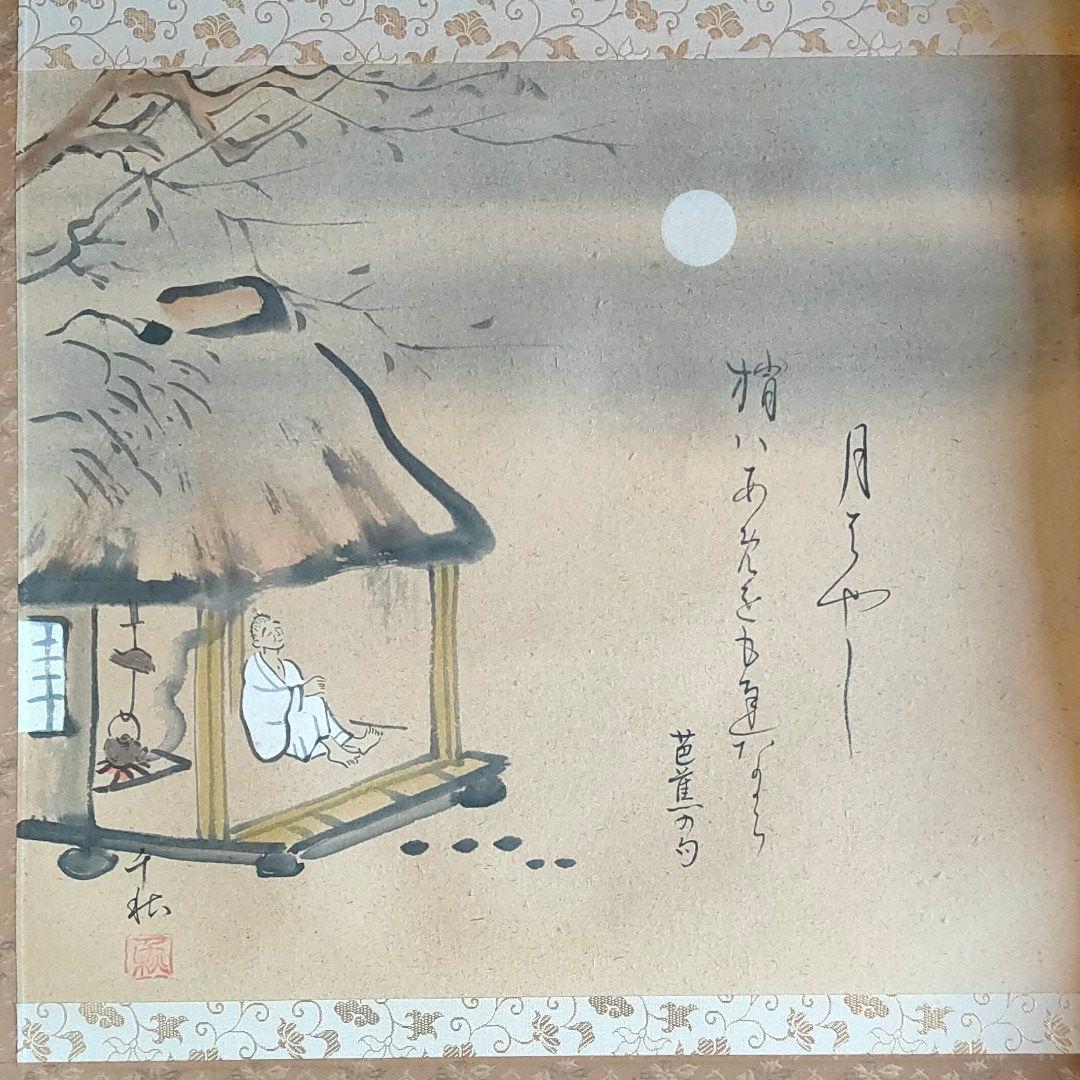 月はやし
梢ハあめを
もちなから
芭蕉の句
千秋